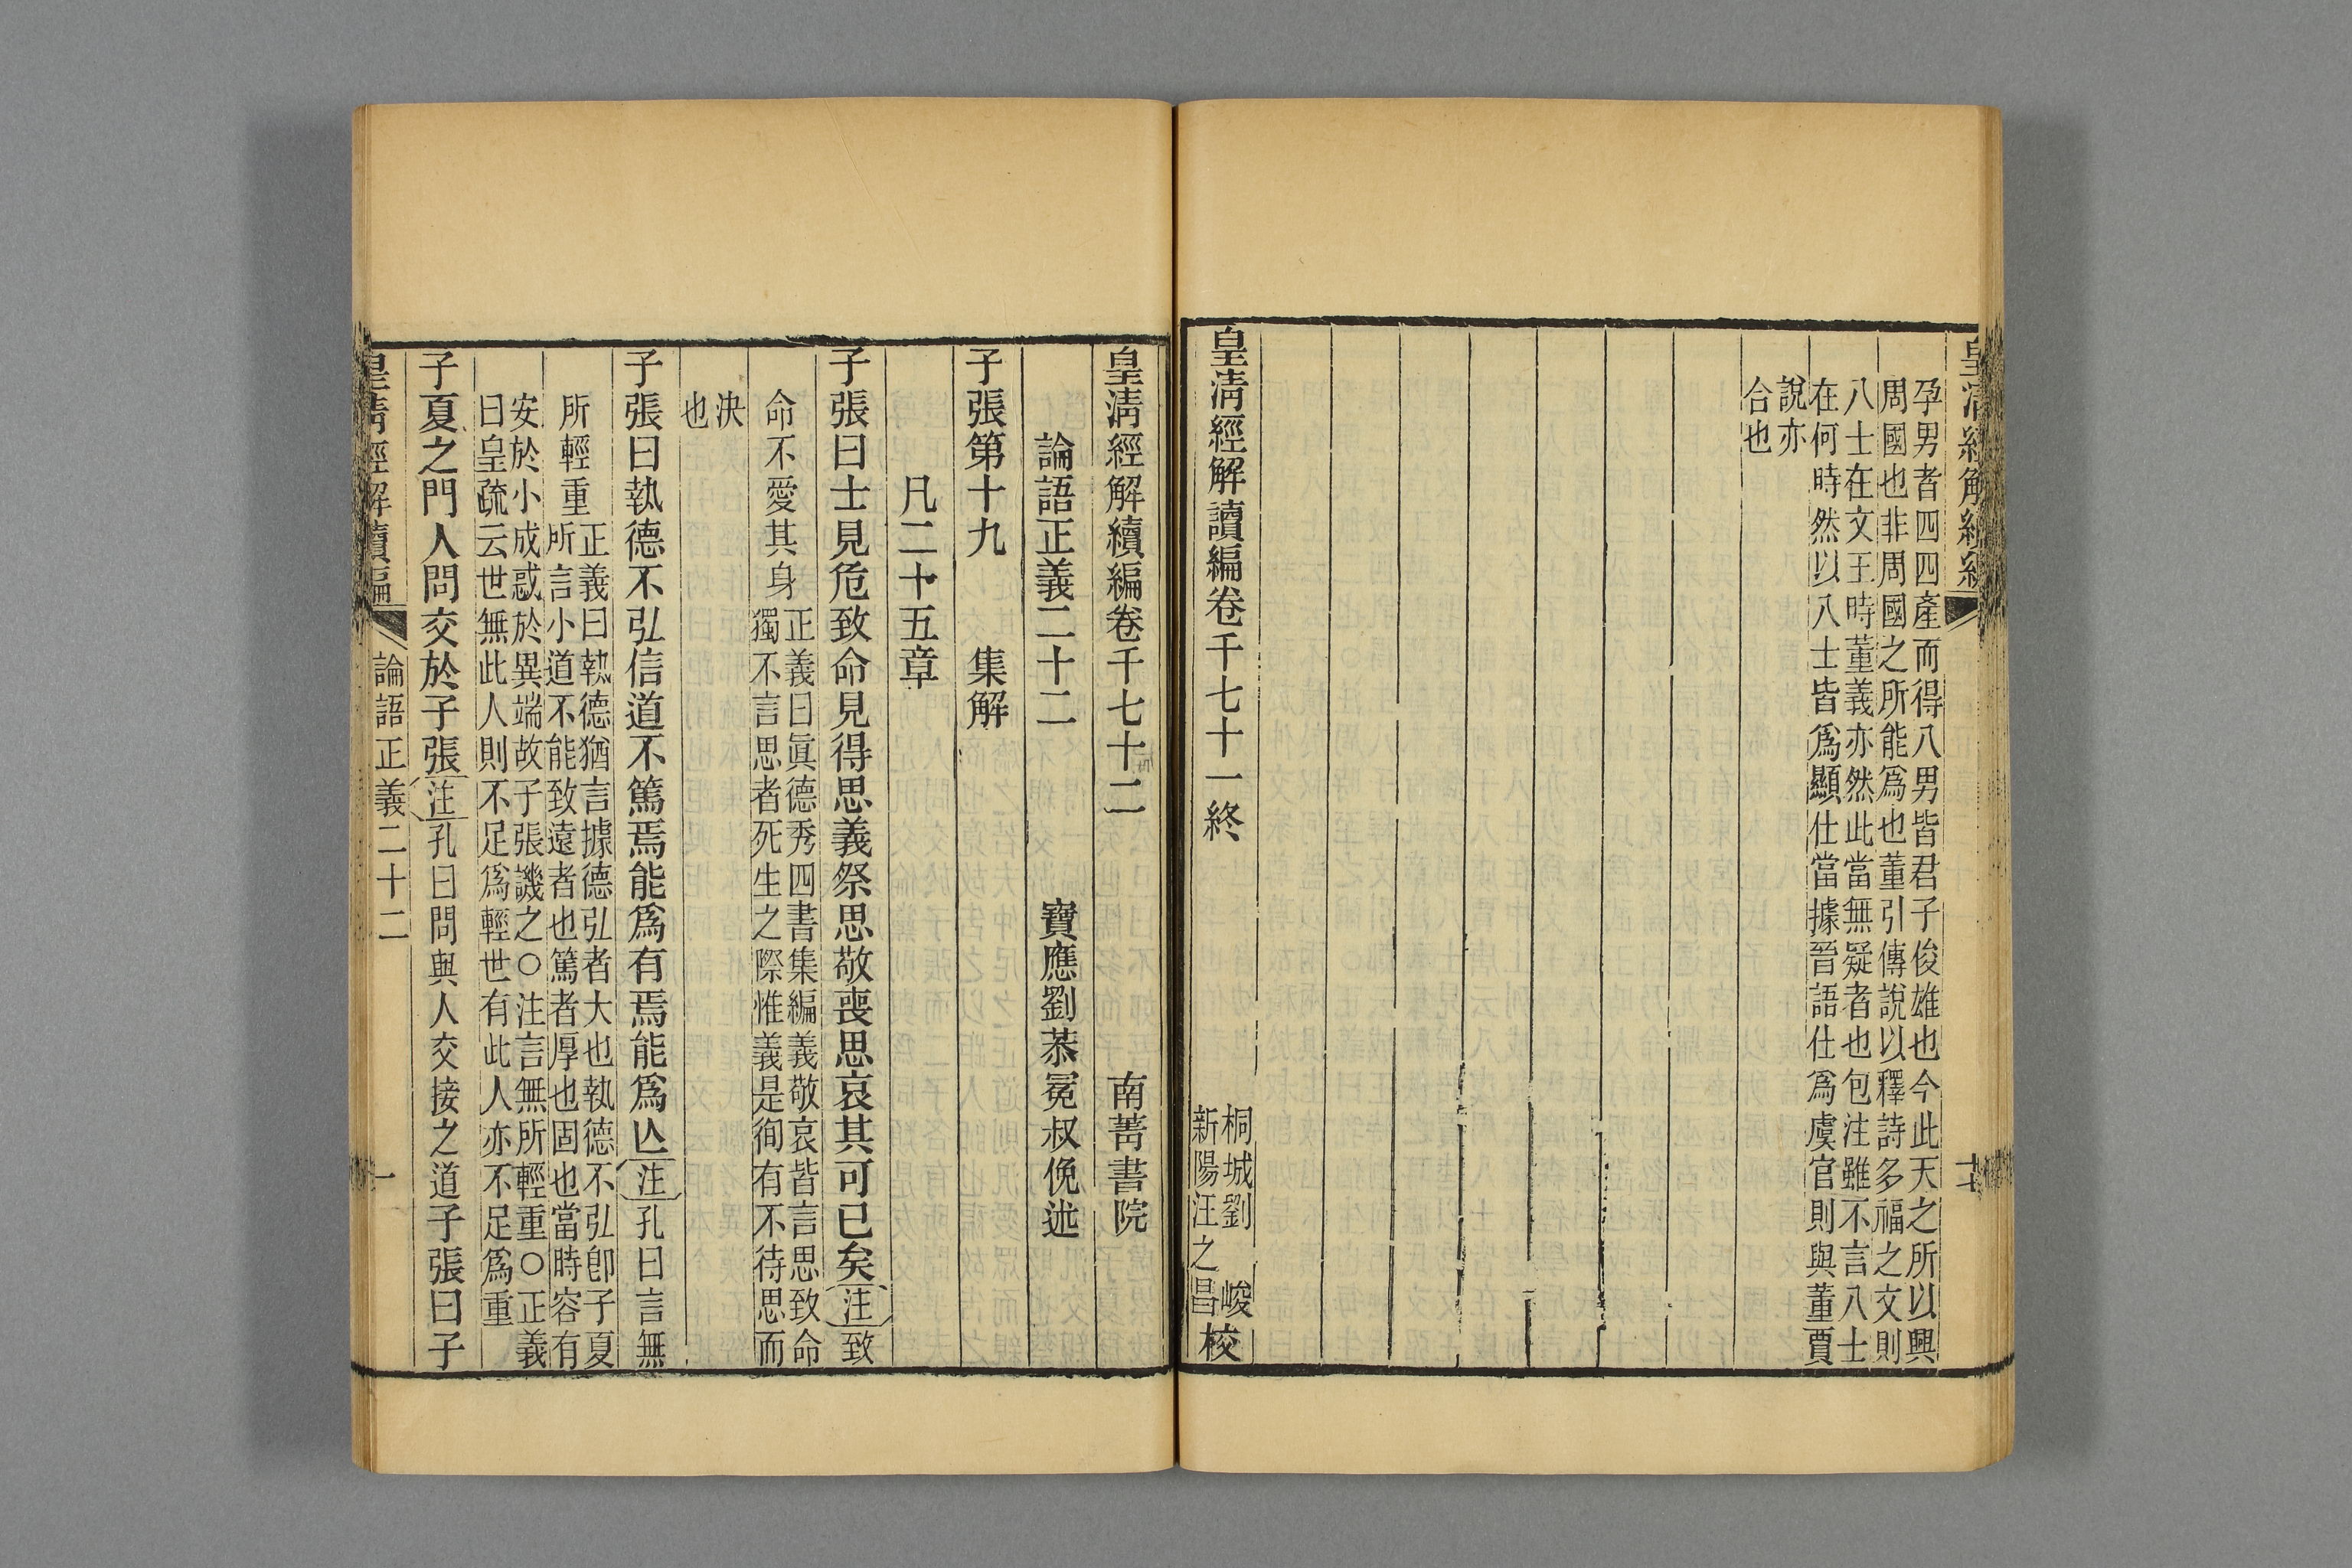 孕男者四四產而得八男皆君子俊雄也今此天之所以興
周國也非周國之所能爲也董引傳說以釋詩多福之文則
八士在文王時董義亦然此當無疑者也包注雖不言八士
在何時然以八士皆爲顯仕當據晉語仕爲虞官則與董賈
說亦
合也
皇淸經解讀編卷千七十一終
桐城劉 峻
新陽汪之昌 校
皇淸經解續編卷千七十二
南菁書院
論語正義二十二
寶應劉恭冕叔俛述
子張第十九 集解
凡二十五章
子張曰士見危致命見得思義祭思敬喪思哀其可已矣注致
命不愛其身
正義曰眞德秀四書集編義敬哀皆言思致命
獨不言思者死生之際惟義是徇有不待思而
決
也
子張曰執德不弘信道不篤焉能爲有焉能爲亾注孔曰言無
所輕重
正義曰執德猶言據德弘者大也執德不弘卽子夏
所言小道不能致遠者也篤者厚也固也當時容有
安於小成惑於異端故子張譏之○注言無所輕重○正義
曰皇疏云世無此人則不足爲輕世有此人亦不足爲重
子夏之門人問交於子張注孔曰問與人交接之道子張曰子
皇淸經解續編 論語正義二十二 一